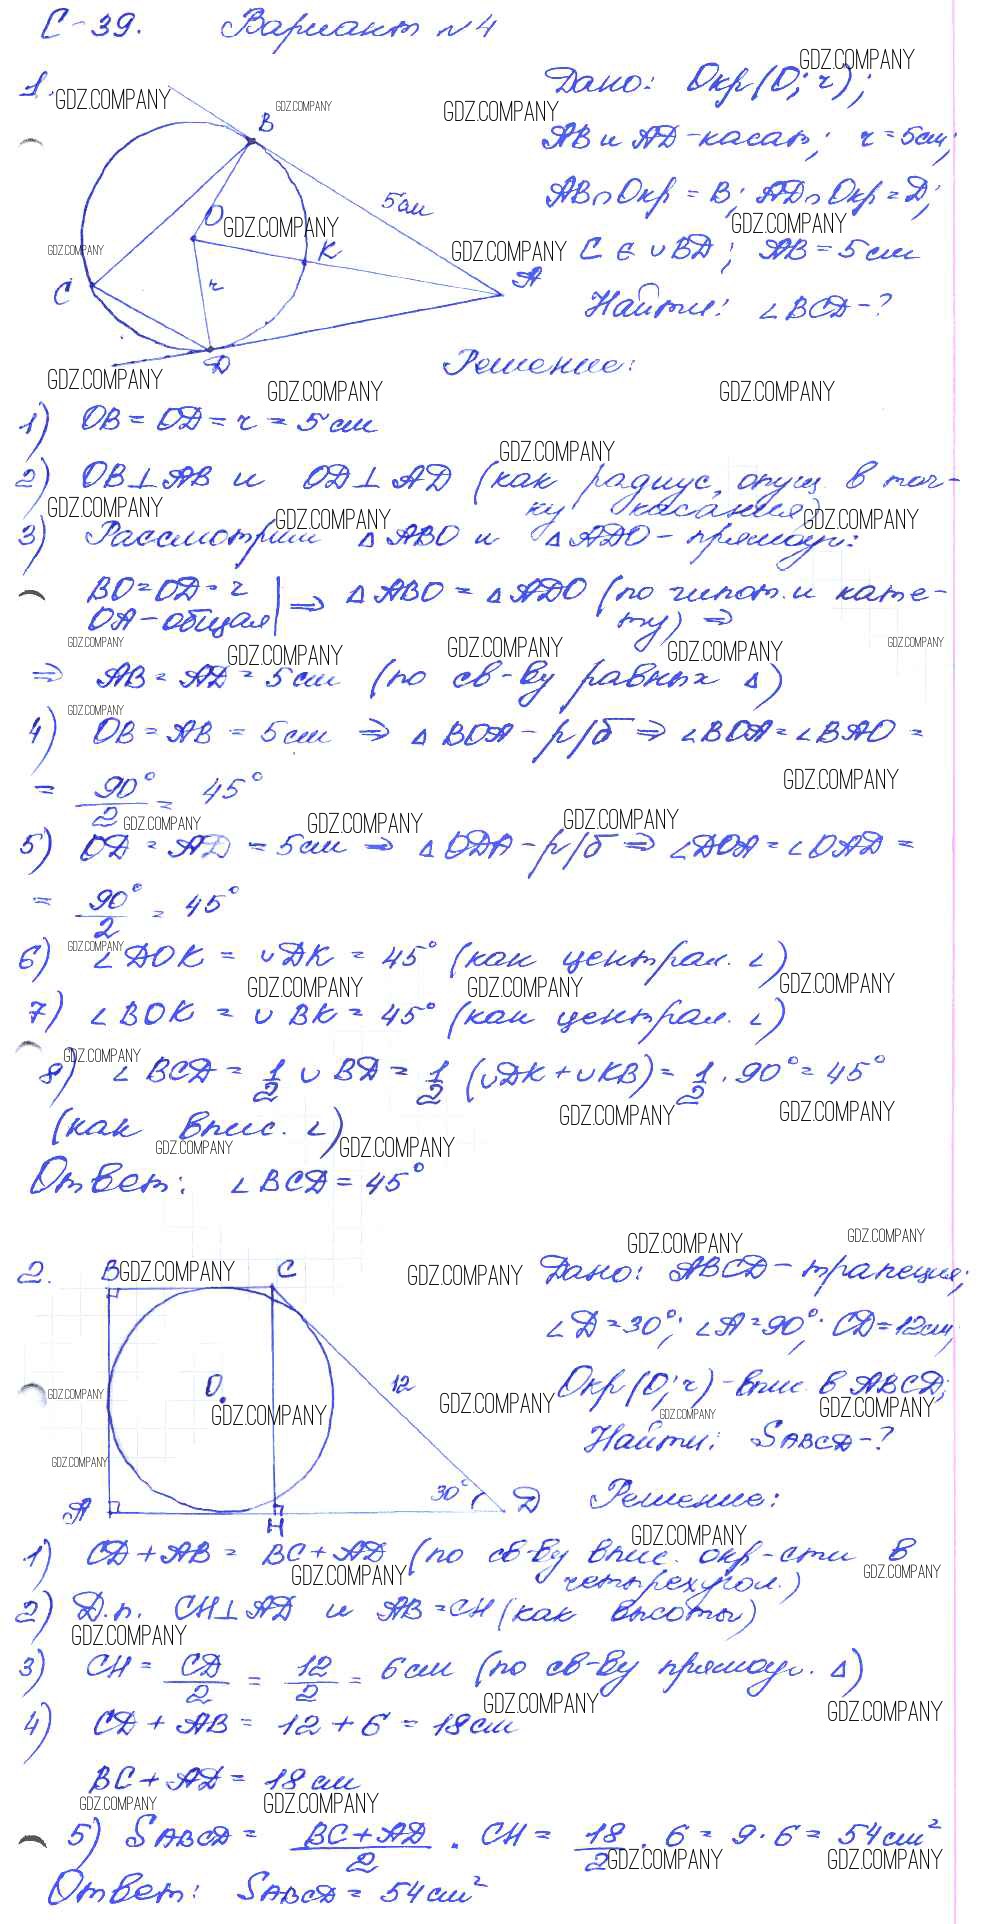 С-39. Вариант №4
1.
Дано: Окр(О; r);
АВ и АD-касат; r=5см;
АВ∩Окр=В; АD∩Окр=D;
С ∈ ∪BD; АВ=5см
Найти: ∠BCD-?
B
5см
O
K
A
C
r
D
Решение:
1) OB=OD=r=5см
2) OB⊥AB и OD⊥AD (как радиус, опущ. в точ-
ку касания)
3) Рассмотрим △ABO и △ADO-прямоуг:
BO=OD=r
OA-общая ⇒ △ABO=△ADO (по гипот. и кате-
ту) ⇒
⇒ AB=AD=5см (по св-ву равных △)
4) OB=AB=5см ⇒ △BOA-р/б ⇒ ∠BOA=∠BAO=
= 90°/2 = 45°
5) OD=AD=5см ⇒ △ODA-р/б ⇒ ∠DOA=∠OAD=
= 90°/2 = 45°
6) ∠DOK=∪DK=45° (как централ. ∠)
7) ∠BOK=∪BK=45° (как централ. ∠)
8) ∠BCD=1/2 ∪BD=1/2 (∪DK+∪KB)=1/2·90°=45°
(как впис. ∠)
Ответ: ∠BCD=45°
2.
Дано: ABCD-трапеция;
∠D=30°; ∠A=90°; CD=12см;
Окр(О; r)-впис. в ABCD;
Найти: SABCD-?
B
C
O
12
30°
A
H
D
Решение:
1) CD+AB=BC+AD (по св-ву впис. окр-сти в
четырехугол.)
2) Д.п. CH⊥AD и AB=CH (как высоты)
3) CH=CD/2=12/2=6см (по св-ву прямоуг. △)
4) CD+AB=12+6=18см
BC+AD=18см
5) SABCD=(BC+AD)/2·CH=18/2·6=9·6=54см²
Ответ: SABCD=54см²
GDZ.COMPANY